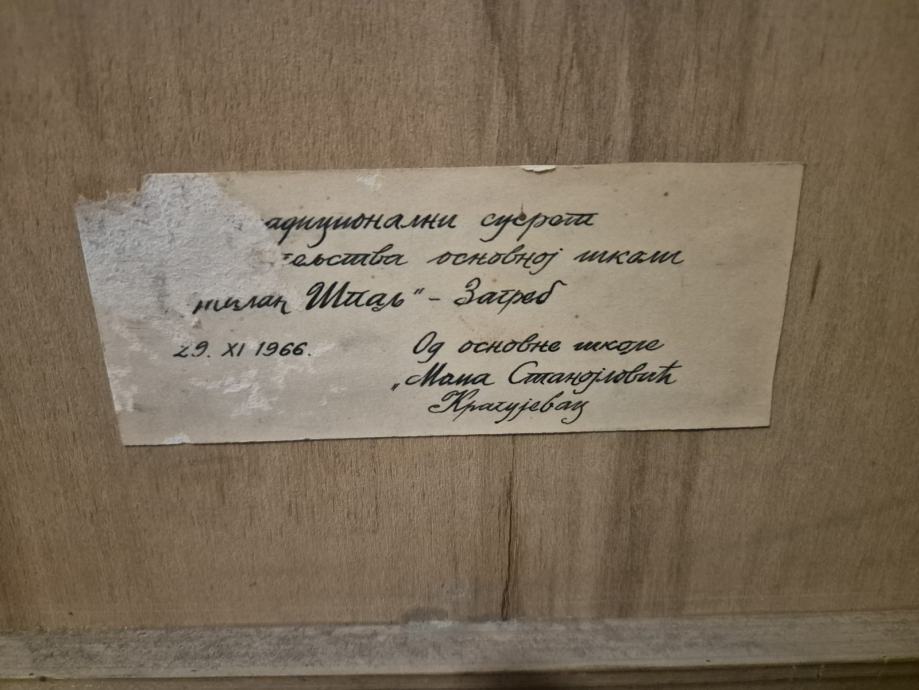 адиционални сусрет
ељства основној школи
Милан Шпаљ" - Загреб
29. XI 1966.
Од основне школе
„Мома Станојловић
Крагујевац